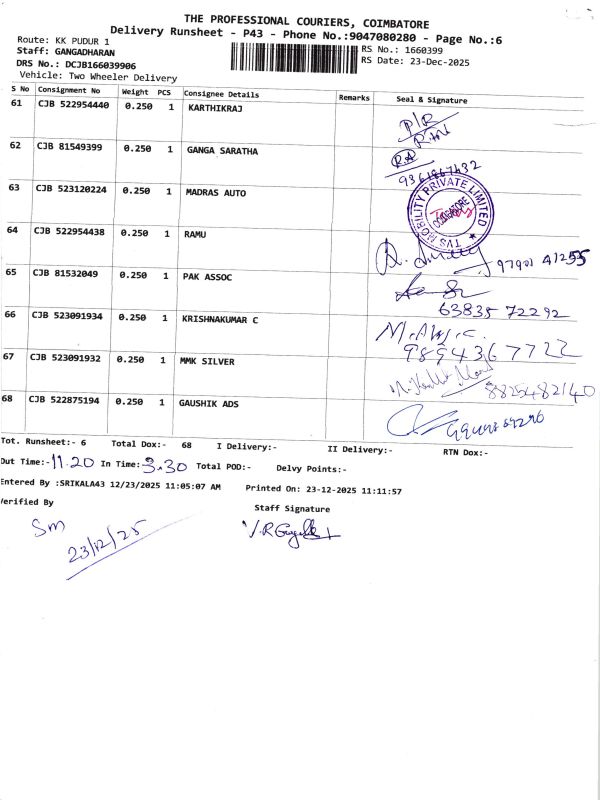 THE PROFESSIONAL COURIERS, COIMBATORE
Delivery Runsheet - P43 - Phone No.:9047080280 - Page No.:6
Route: KK PUDUR 1
RS No.: 1660399
Staff: GANGADHARAN
RS Date: 23-Dec-2025
DRS No.: DCJB166039906
Vehicle: Two Wheeler Delivery
S No Consignment No Weight PCS Consignee Details Remarks Seal & Signature
61 CJB 522954440 0.250 1 KARTHIKRAJ
P/R
62 CJB 81549399 0.250 1 GANGA SARATHA
RA
9361867432
63 CJB 523120224 0.250 1 MADRAS AUTO
TVS MOBILITY PRIVATE LIMITED
COIMBATORE
64 CJB 522954438 0.250 1 RAMU
97901 41255
65 CJB 81532049 0.250 1 PAK ASSOC
63835 72292
66 CJB 523091934 0.250 1 KRISHNAKUMAR C
9894367722
67 CJB 523091932 0.250 1 MMK SILVER
8825482140
68 CJB 522875194 0.250 1 GAUSHIK ADS
Tot. Runsheet:- 6 Total Dox:- 68 I Delivery:- II Delivery:- RTN Dox:-
Out Time:- 11.20 In Time: 3.30 Total POD:- Delvy Points:-
Entered By :SRIKALA43 12/23/2025 11:05:07 AM Printed On: 23-12-2025 11:11:57
Verified By Staff Signature
Sm
23/12/25